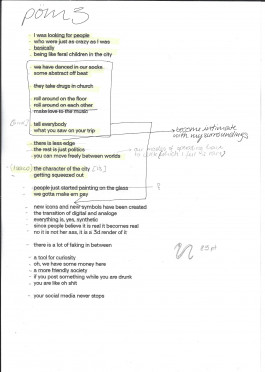 pom3
- I was looking for people
who were just as crazy as I was
- basically
- being like feral children in the city
- we have danced in our socks
some abstract off beat
- they take drugs in church
- roll around on the floor
- roll around on each other
- make love to the music
- tell everybody
- what you saw on your trip
become intimate
with my surroundings
- there is less edge
- the rest is just politics
- you can move freely between worlds
- the character of the city
- getting squeezed out
- people just started painting on the glass
- we gotta make em pay
?
- new icons and new symbols have been created
- the transition of digital and analoge
- everything is, yes, synthetic
- since people believe it is real it becomes real
- no it is not her ass, it is a 3d render of it
- there is a lot of faking in between
- a tool for curiosity
- oh, we have some money here
- a more friendly society
- if you post something while you are drunk
- you are like oh shit
- your social media never stops